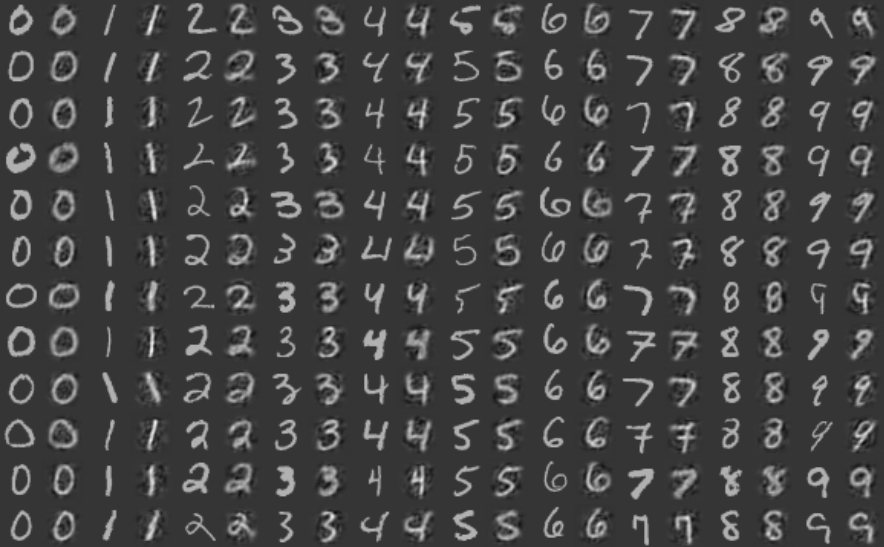 0 0 1 1 2 2 3 3 4 4 5 5 6 6 7 7 8 8 9 9
0 0 1 1 2 2 3 3 4 4 5 5 6 6 7 7 8 8 9 9
0 0 1 1 2 2 3 3 4 4 5 5 6 6 7 7 8 8 9 9
0 0 1 1 2 2 3 3 4 4 5 5 6 6 7 7 8 8 9 9
0 0 1 1 2 2 3 3 4 4 5 5 6 6 7 7 8 8 9 9
0 0 1 1 2 2 3 3 4 4 5 5 6 6 7 7 8 8 9 9
0 0 1 1 2 2 3 3 4 4 5 5 6 6 7 7 8 8 9 9
0 0 1 1 2 2 3 3 4 4 5 5 6 6 7 7 8 8 9 9
0 0 1 1 2 2 3 3 4 4 5 5 6 6 7 7 8 8 9 9
0 0 1 1 2 2 3 3 4 4 5 5 6 6 7 7 8 8 9 9
0 0 1 1 2 2 3 3 4 4 5 5 6 6 7 7 8 8 9 9
0 0 1 1 2 2 3 3 4 4 5 5 6 6 7 7 8 8 9 9